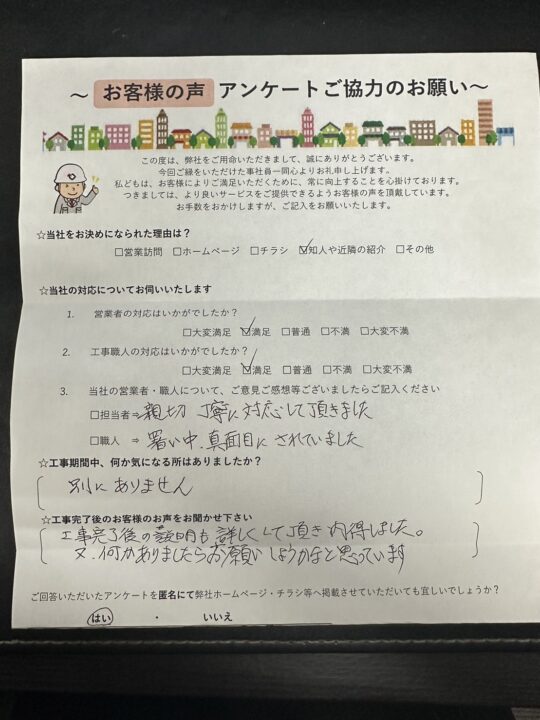 ～ お客様の声 アンケートご協力のお願い～
この度は、弊社をご用命いただきまして、誠にありがとうございます。
今回ご縁をいただけた事社員一同心よりお礼申し上げます。
私どもは、お客様によりご満足いただくために、常に向上することを心掛けております。
つきましては、より良いサービスをご提供できるようお客様の声を頂戴しています。
お手数をおかけしますが、ご記入をお願いいたします。
☆当社をお決めになられた理由は？
□営業訪問 □ホームページ □チラシ ☑知人や近隣の紹介 □その他
☆当社の対応についてお伺いいたします
1. 営業者の対応はいかがでしたか？
□大変満足 ☑満足 □普通 □不満 □大変不満
2. 工事職人の対応はいかがでしたか？
□大変満足 ☑満足 □普通 □不満 □大変不満
3. 当社の営業者・職人について、ご意見ご感想等ございましたらご記入ください
□担当者⇒親切 丁寧に対応して頂きました
□職人 ⇒ 暑い中、真面目にされていました
☆工事期間中、何か気になる所はありましたか？
別にありません
☆工事完了後のお客様のお声をお聞かせ下さい
工事完了後の説明も詳しくして頂き納得しました。
又、何かありましたらお願いしようかなと思っています
ご回答いただいたアンケートを匿名にて弊社ホームページ・チラシ等へ掲載させていただいても宜しいでしょうか？
はい ・ いいえ